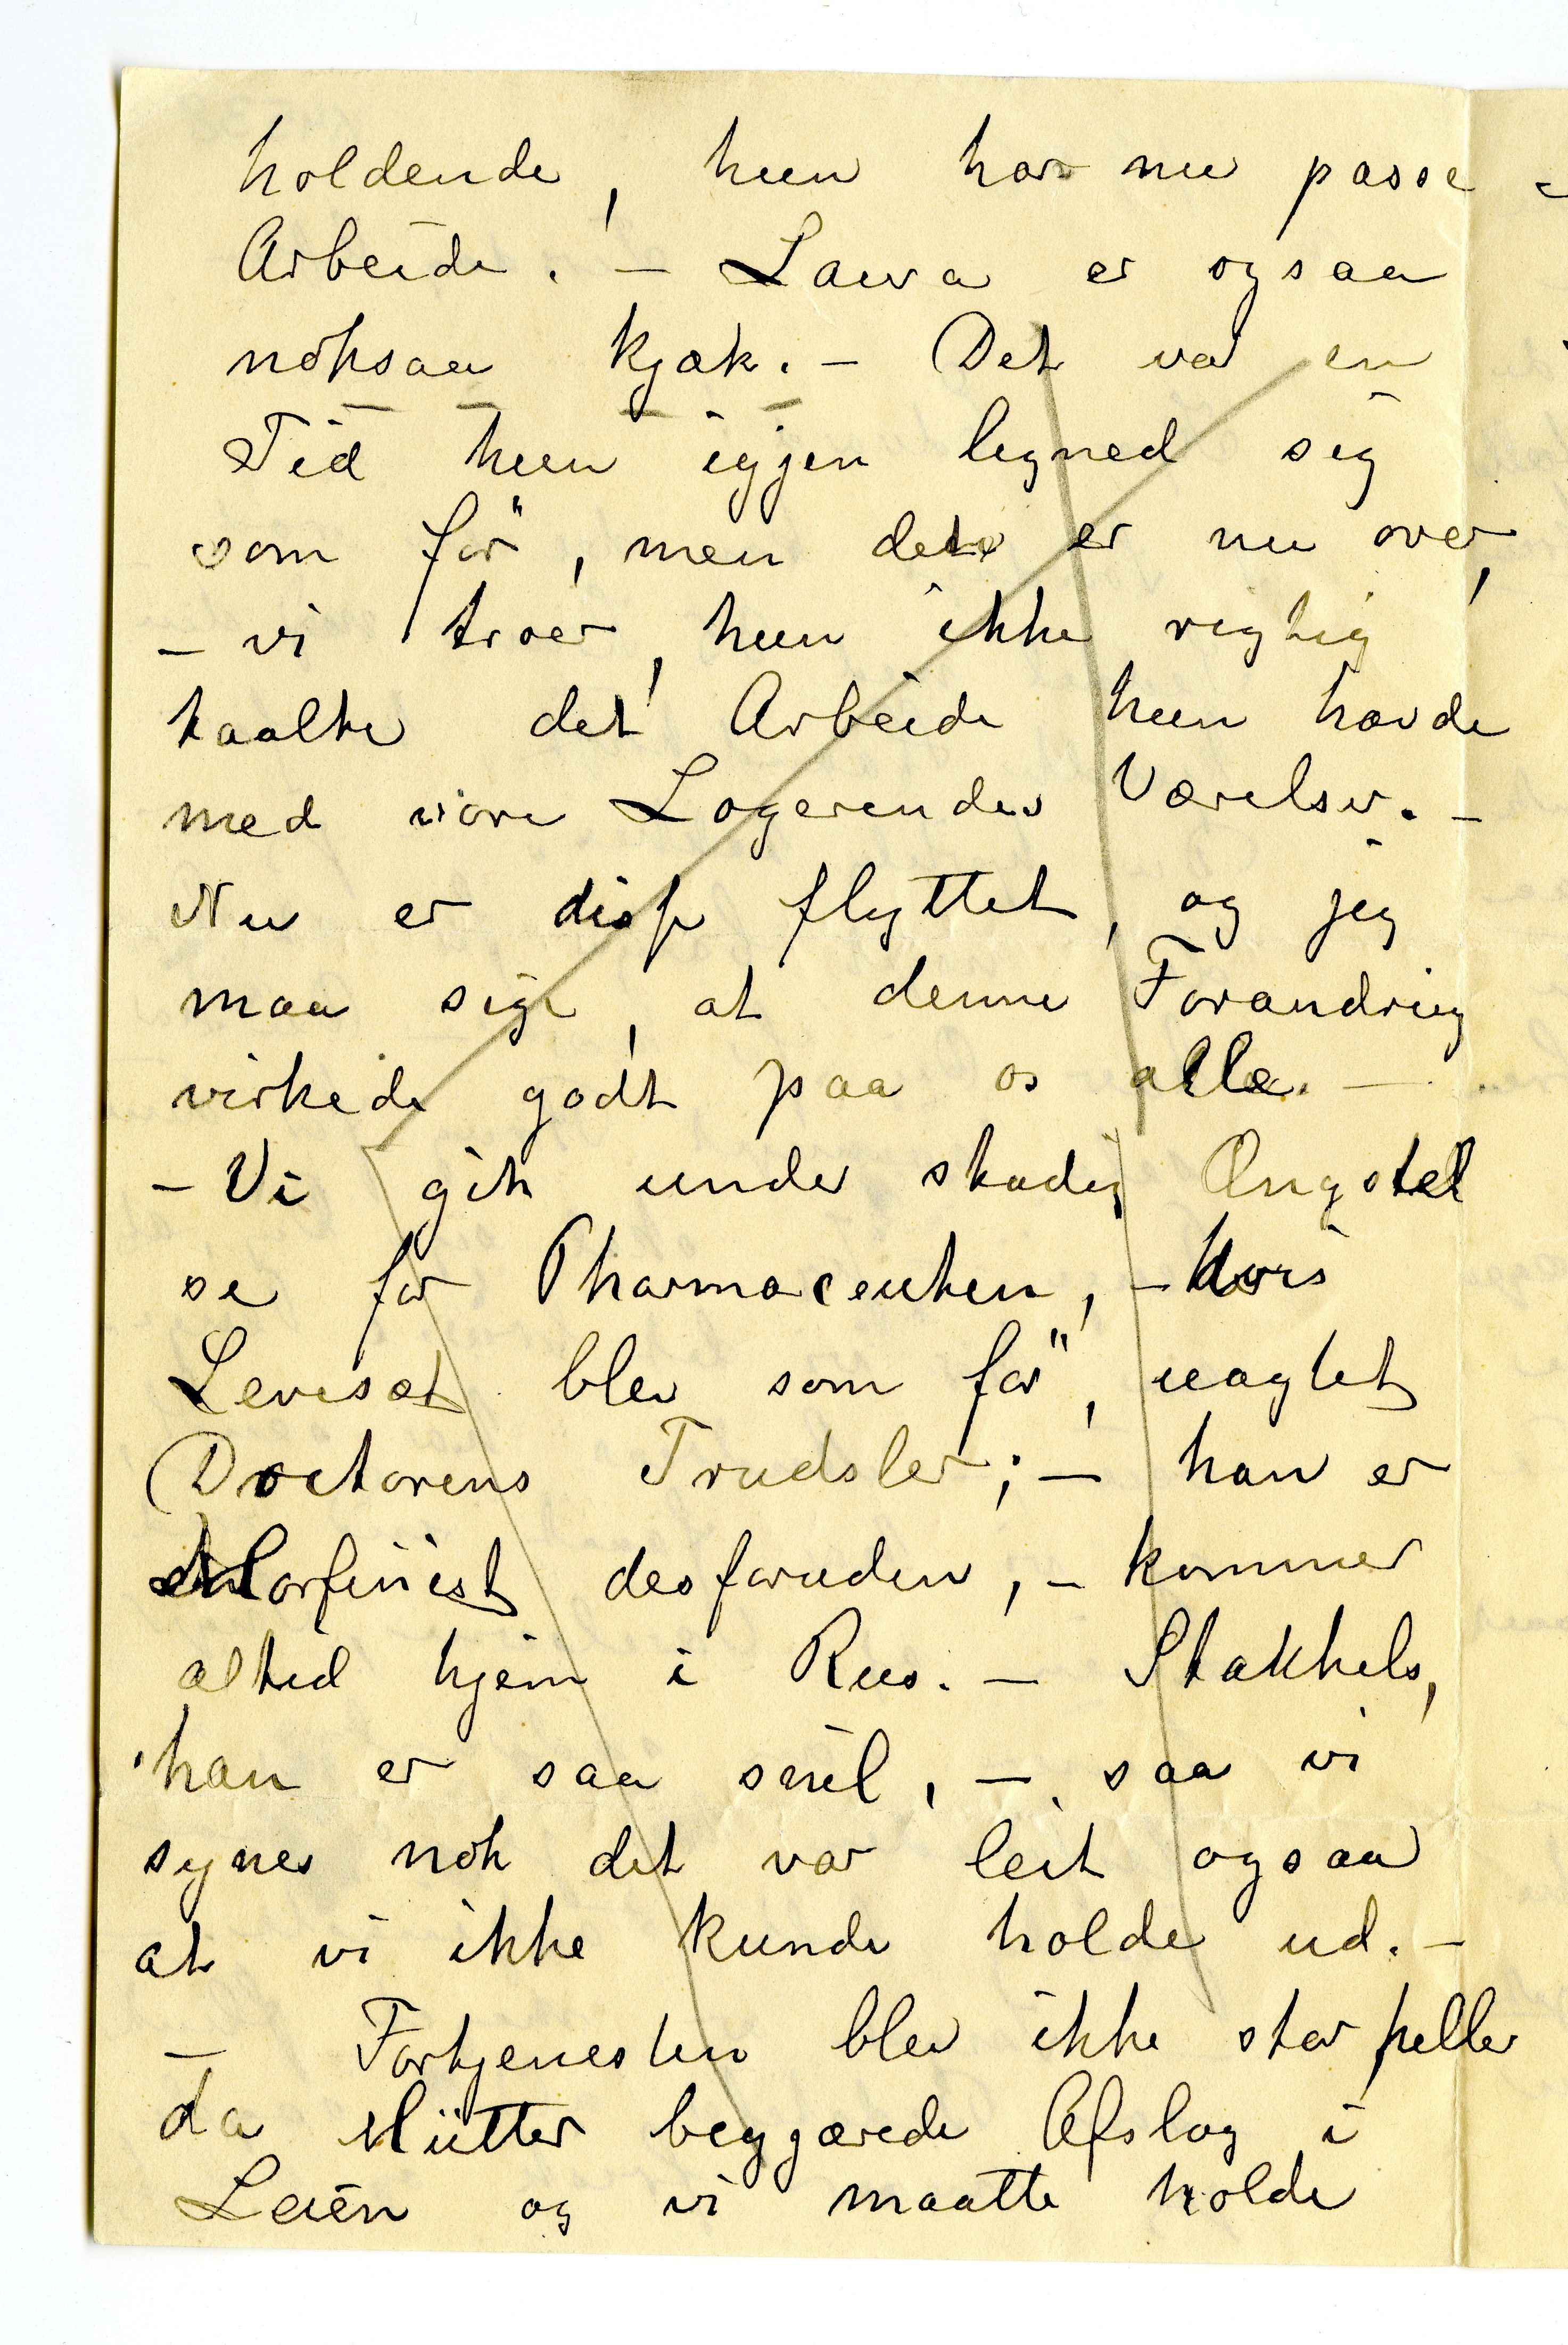 holdende, hun har nu passe -
Arbeide. – Laura er ogsaa
noksaa kjæk. – Det var en
Tid hun igjen ligned sig
som för, men det er nu over,
– vi troer, hun ikke rigtig
taalte det Arbeide hun havde
med vore Logerendes Værelser. –
Nu er disse flyttet, og jeg
maa sige, at denne Forandring
virkede godt paa os alle. –
– Vi gik under stadig Ængstel
se for Pharmaceuten, – hvis
Levesæt blev som för, uagtet
Doctorens Trudsler; – han er
Morfinist desforuden, – kommer
altid hjem i Rus. – Stakkels,
han er saa snil, – saa vi
synes nok det var leit ogsaa
at vi ikke kunde holde ud. –
– Fortjenesten blev ikke stor heller
da Mütter begjærede Afslag i
Leien og vi maatte holde